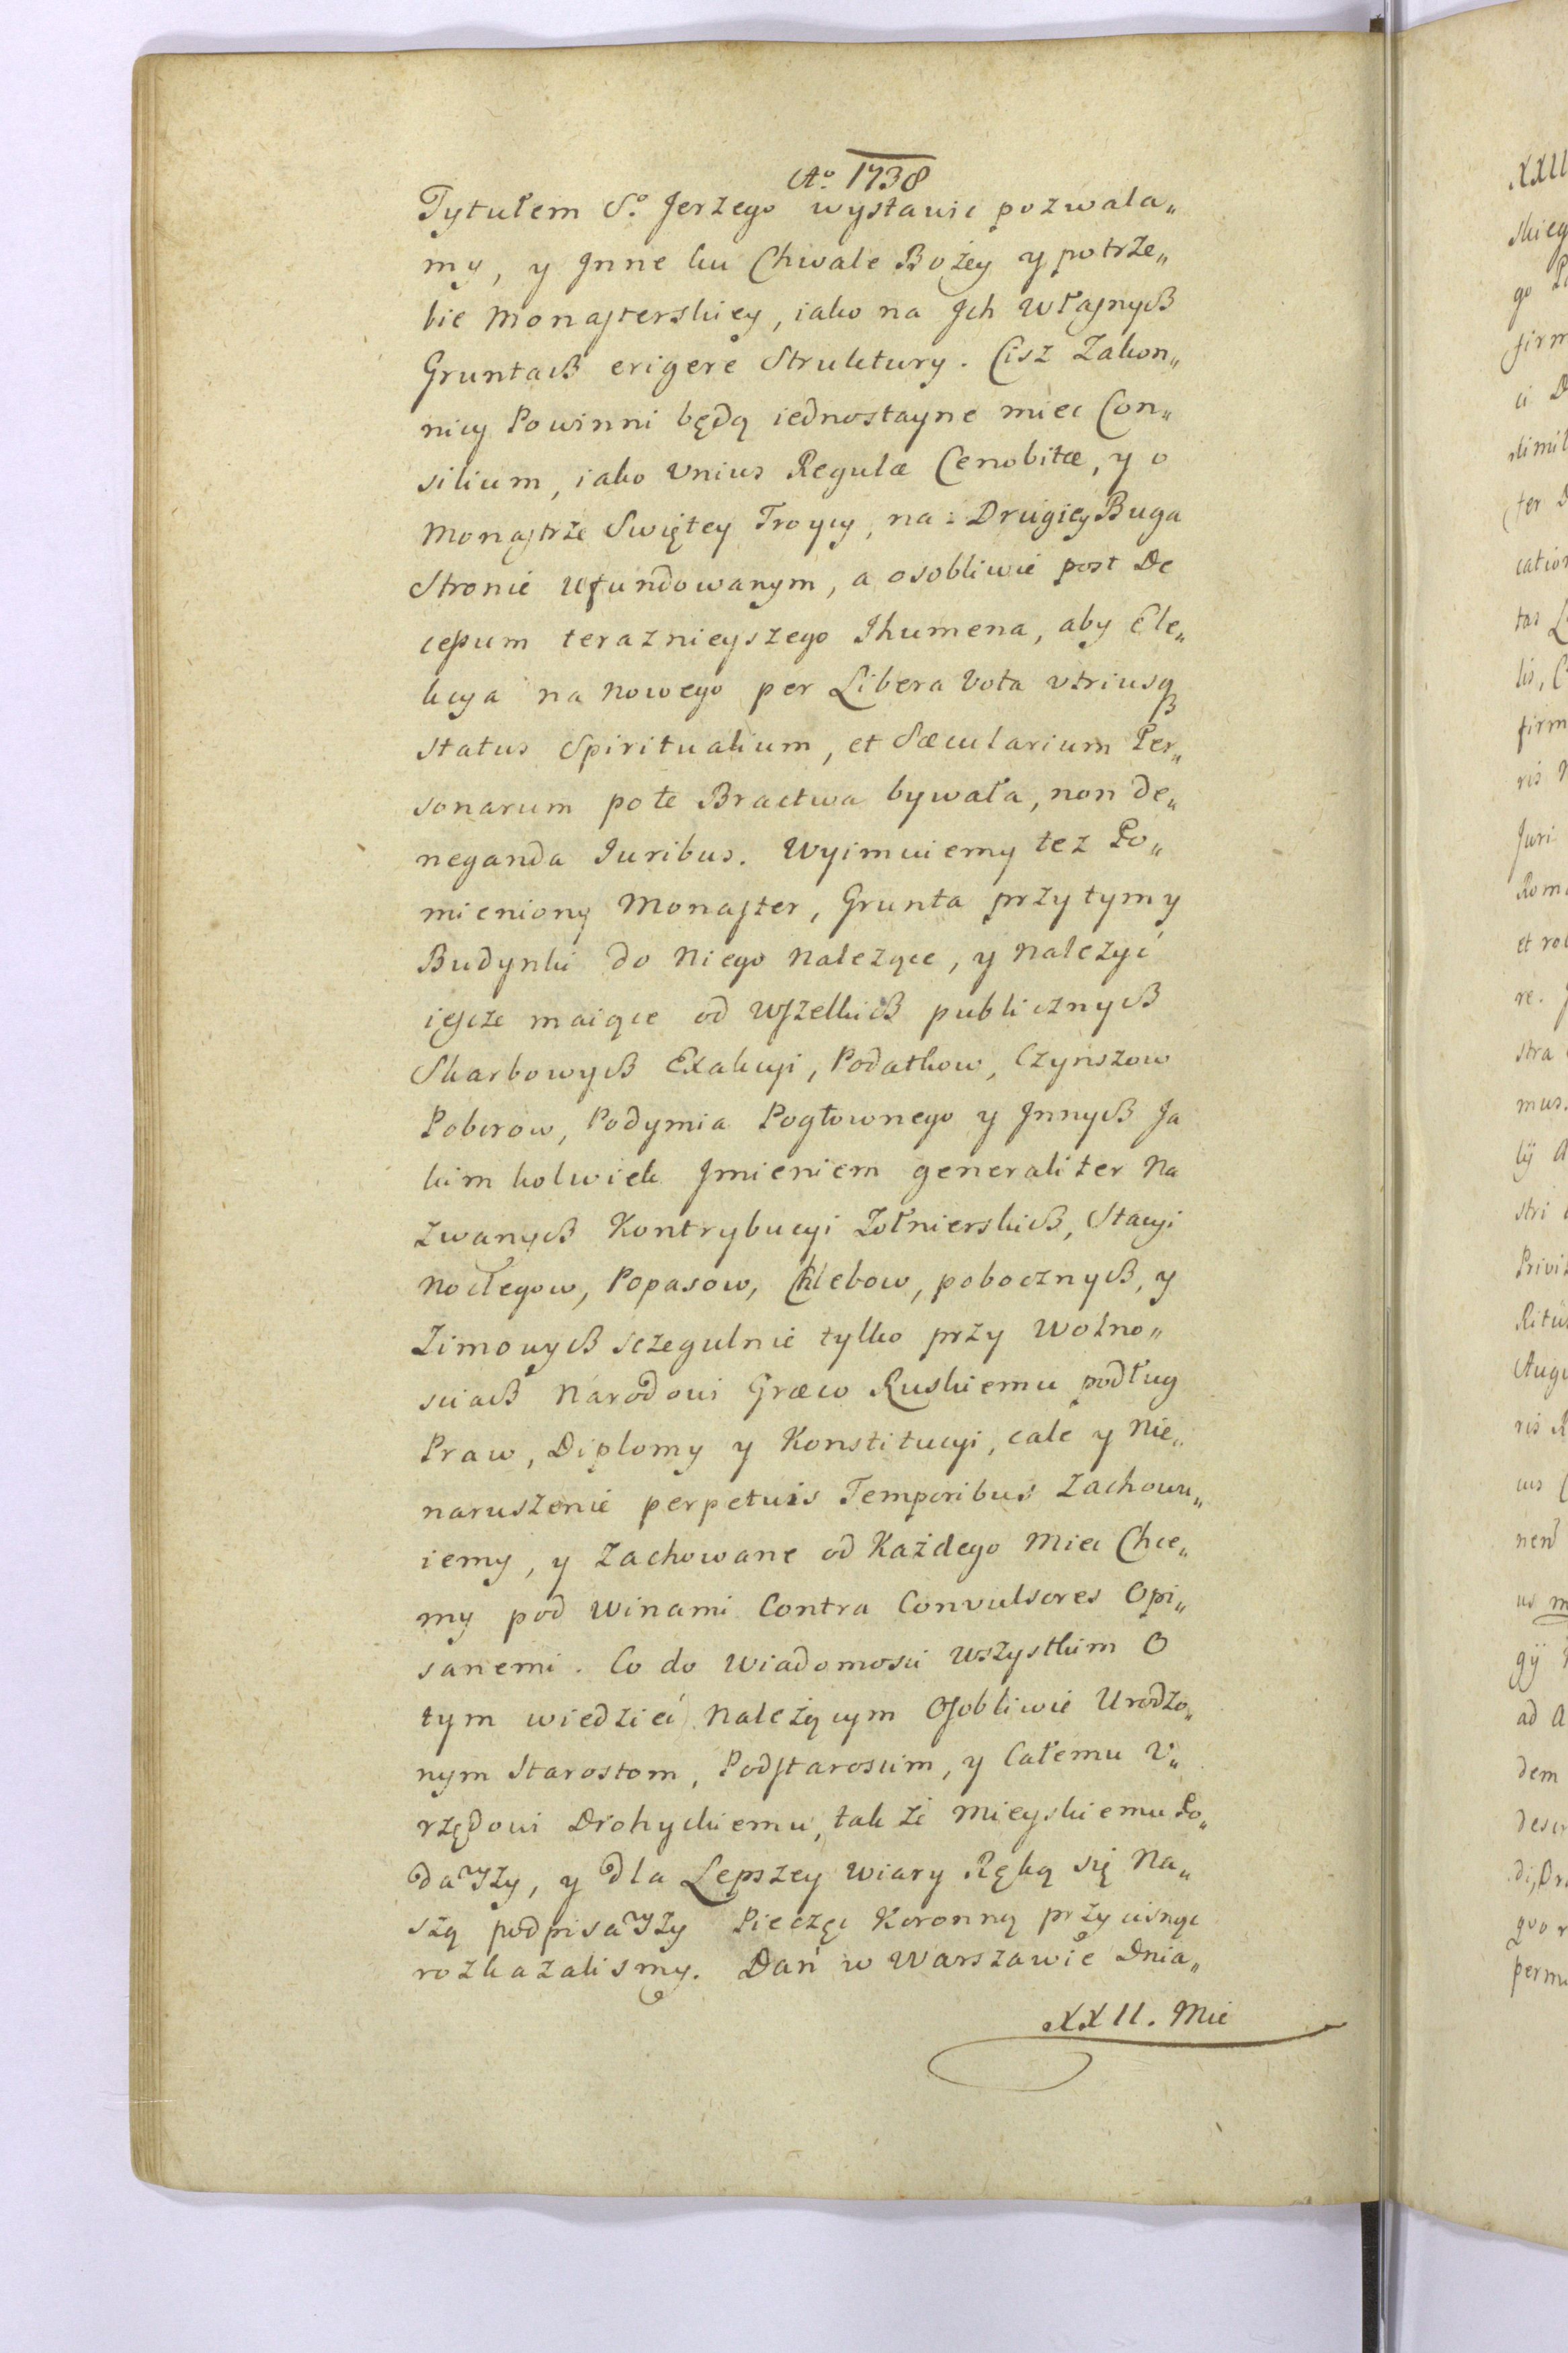 Aº. 1738
Tytułem Sº. Jerzego wystawić pozwala„
my, y Jnne ku Chwale Bożey y potrze„
bie Monasterskiey, iako na Jch Własnych
Gruntach erigere Struktury. Cisz Zakon„
nicy Powinni będą iednostayne miec Con„
silium, iako Unius Regulæ Cenobitæ, y o
Monastrze Swiętey Troycy, na Drugiey Buga
Stronie Ufundowanym, a osobliwie post De
cessum teraznieyszego Jhumena, aby Ele„
kcya na nowego per Libera Vota utriusq
Status Spiritualium, et Sæcularium Per„
sonarum pote Bractwa bywała, non de„
neganda Juribus. Wyimuiemy tez Po„
mieniony Monaster, Grunta przytym y
Budynki do Niego Nalezące, y Należyć
iescze maiące od Wszelkich publicznych
Skarbowych Exakcyi, Podatkow, Czynszow
Poborow, Podymia Pogłownego y Jnnych Ja
kim kolwiek Jmieniem generaliter Na
zwanych Kontrybucyi Zołnierskich, Stacyi
Noclegow, Popasow, Chlebow, pobocznych, y
Zimowych sczegulnie tylko przy Wolno„
sciach Narodowi Græco Ruskiemu podług
Praw, Diplomy y Konstitucyi, cale y Nie„
naruszenie perpetuis Temporibus Zachowu„
iemy, y Zachowane od Każdego Miec Chce„
my pod Winami Contra Convulsores Opi„
sanemi. Co do Wiadomosci Wszystkim O
tym wiedzieć Należącym Osobliwie Urodzo„
nym Starostom, Podstaroscim, y Całemu U„
rzędowi Drohyckiemu, tak że Mieyskiemu Po„
dawszy, y dla Lepszey Wiary Ręką się Na„
szą podpisawszy Pieczęc Koronną przycisnąc
rozkazalismy. Dań w Warszawie Dnia„
XXII. Mie
XXII
skieg
go
firm
ci
simil
ter
cation
tas
lis,
firm
ris
Juri
Roma
et
re.
stra
mus.
lij
stri
Privi
Ritus
Augu
ris
ius
nend
us
gij
ad
dem
descr
di,
quo
permi